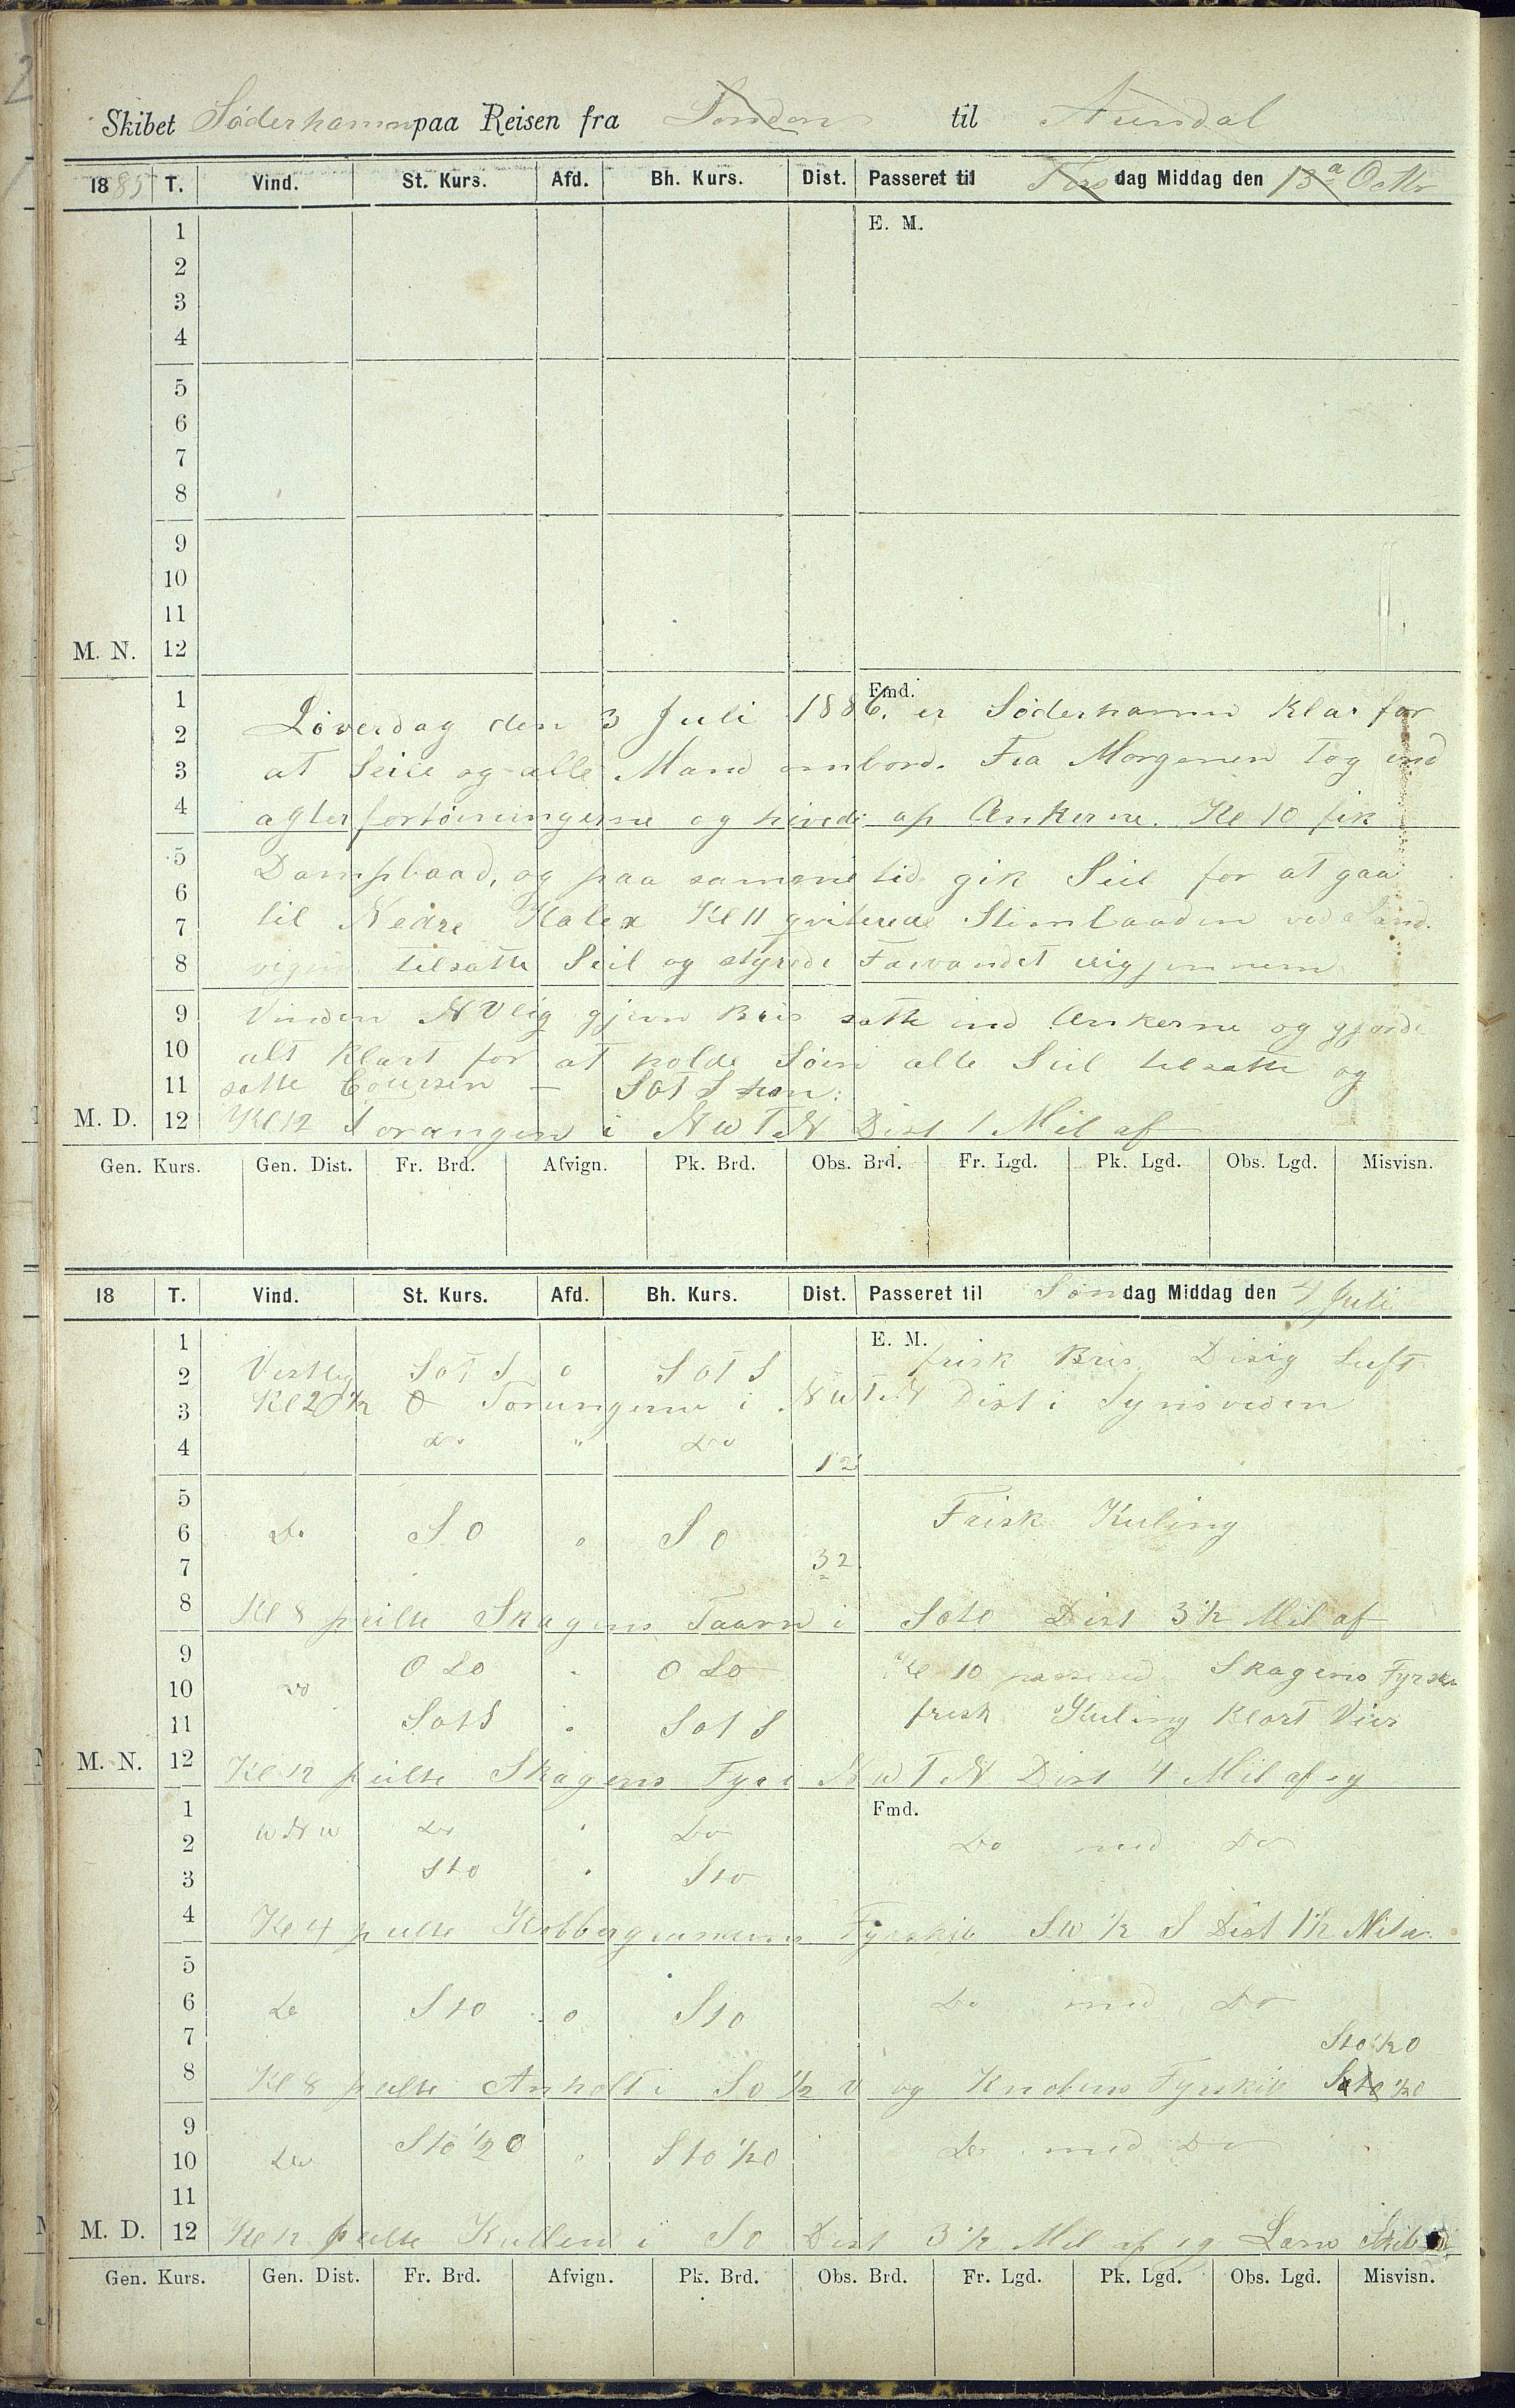 Skibet Söderhamn paa Reisen fra London til Arendal
1885 T. Vind. St. Kurs. Afd. Bh. Kurs. Dist. Passeret til Tirsdag Middag den 13a Octbr
E. M.
1
2
3
4
5
6
7
8
9
10
11
M. N. 12
Fmd.
1 Löverdag den 3 Juli 1886. er Söderhamn Klar for
2
3 at Seile og alle Mand ombord. Fra Morgenen tog ind
4 agterfortöiningerne og hivede op Ankerne. Kl 10 fik
5 Dampbaad, og paa samme tid gik Seil for at gaa
6
7 til Nedre Kalex Kl 11 qviterede Stimbaaden ved Sand
8 vigen tilsatte Seil og styrede Farvandet igjennem
9 Vinden NVlig gjevn Bris satte ind Ankerne og gjorde
10 alt Klart for at holde Söen alle Seil tilsatte og
11 satte Coursen — SOTS
M. D. 12 Kl 12 Torungen i NWTN Dist 1 Mil af
Gen. Kurs. Gen. Dist. Fr. Brd. Afvign. Pk. Brd. Obs. Brd. Fr. Lgd. Pk. Lgd. Obs. Lgd. Misvisn.
18 T. Vind. St. Kurs. Afd. Bh. Kurs. Dist. Passeret til Søndag Middag den 4 Juli
1 E. M.
2 Vestlig SOTS o SOTS frisk Bris Disig Luft
3 Kl 2 1/2 Torungerne i NWTN Dist i Synsveden
4 Do " Do 12
5
6 Do SO o SO Frisk Kuling
7 32
8 Kl 8 peilte Skagens Taarn i Dist 3 1/2 Mil af
9 OSO " OSO Kl 10 passered Skagens Fyrskib
10 Do
11 SOTS " SOTS frisk Kuling Klart Veir
M. N. 12 Kl 12 peilte Skagens Fyr i NWTN Dist 4 Mil af sig
1 Fmd.
2 WNW Do " Do Do med Do
3 STO " STO
4 Kl 4 peilte Fyrskib SW 1/2 S Dist 1 1/2 Mil
5
6 Do STO o STO Do med Do
7 STO 1/2 O
8 Kl 8 peilte Anholt i SO 1/2 og Knobens Fyrskib
9
10 Do STO 1/2 O " STO 1/2 O Do med Do
11
M. D. 12 Kl 12 peilte Kullen i SO Dist 3 1/2 Mil af sig
Gen. Kurs. Gen. Dist. Fr. Brd. Afvign. Pk. Brd. Obs. Brd. Fr. Lgd. Pk. Lgd. Obs. Lgd. Misvisn.